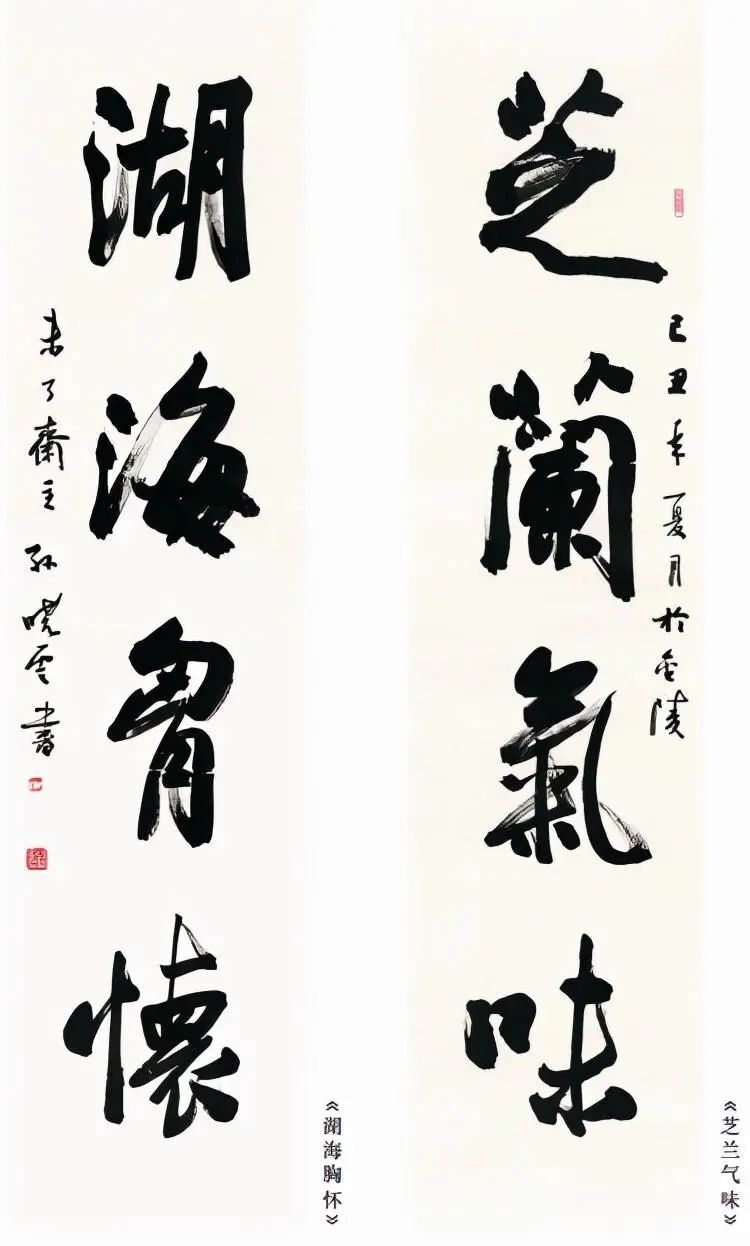 芝蘭氣味
己丑年夏月於金陵
湖海胷懷
未了齋主孙曉雲書
《芝兰气味》
《湖海胸怀》